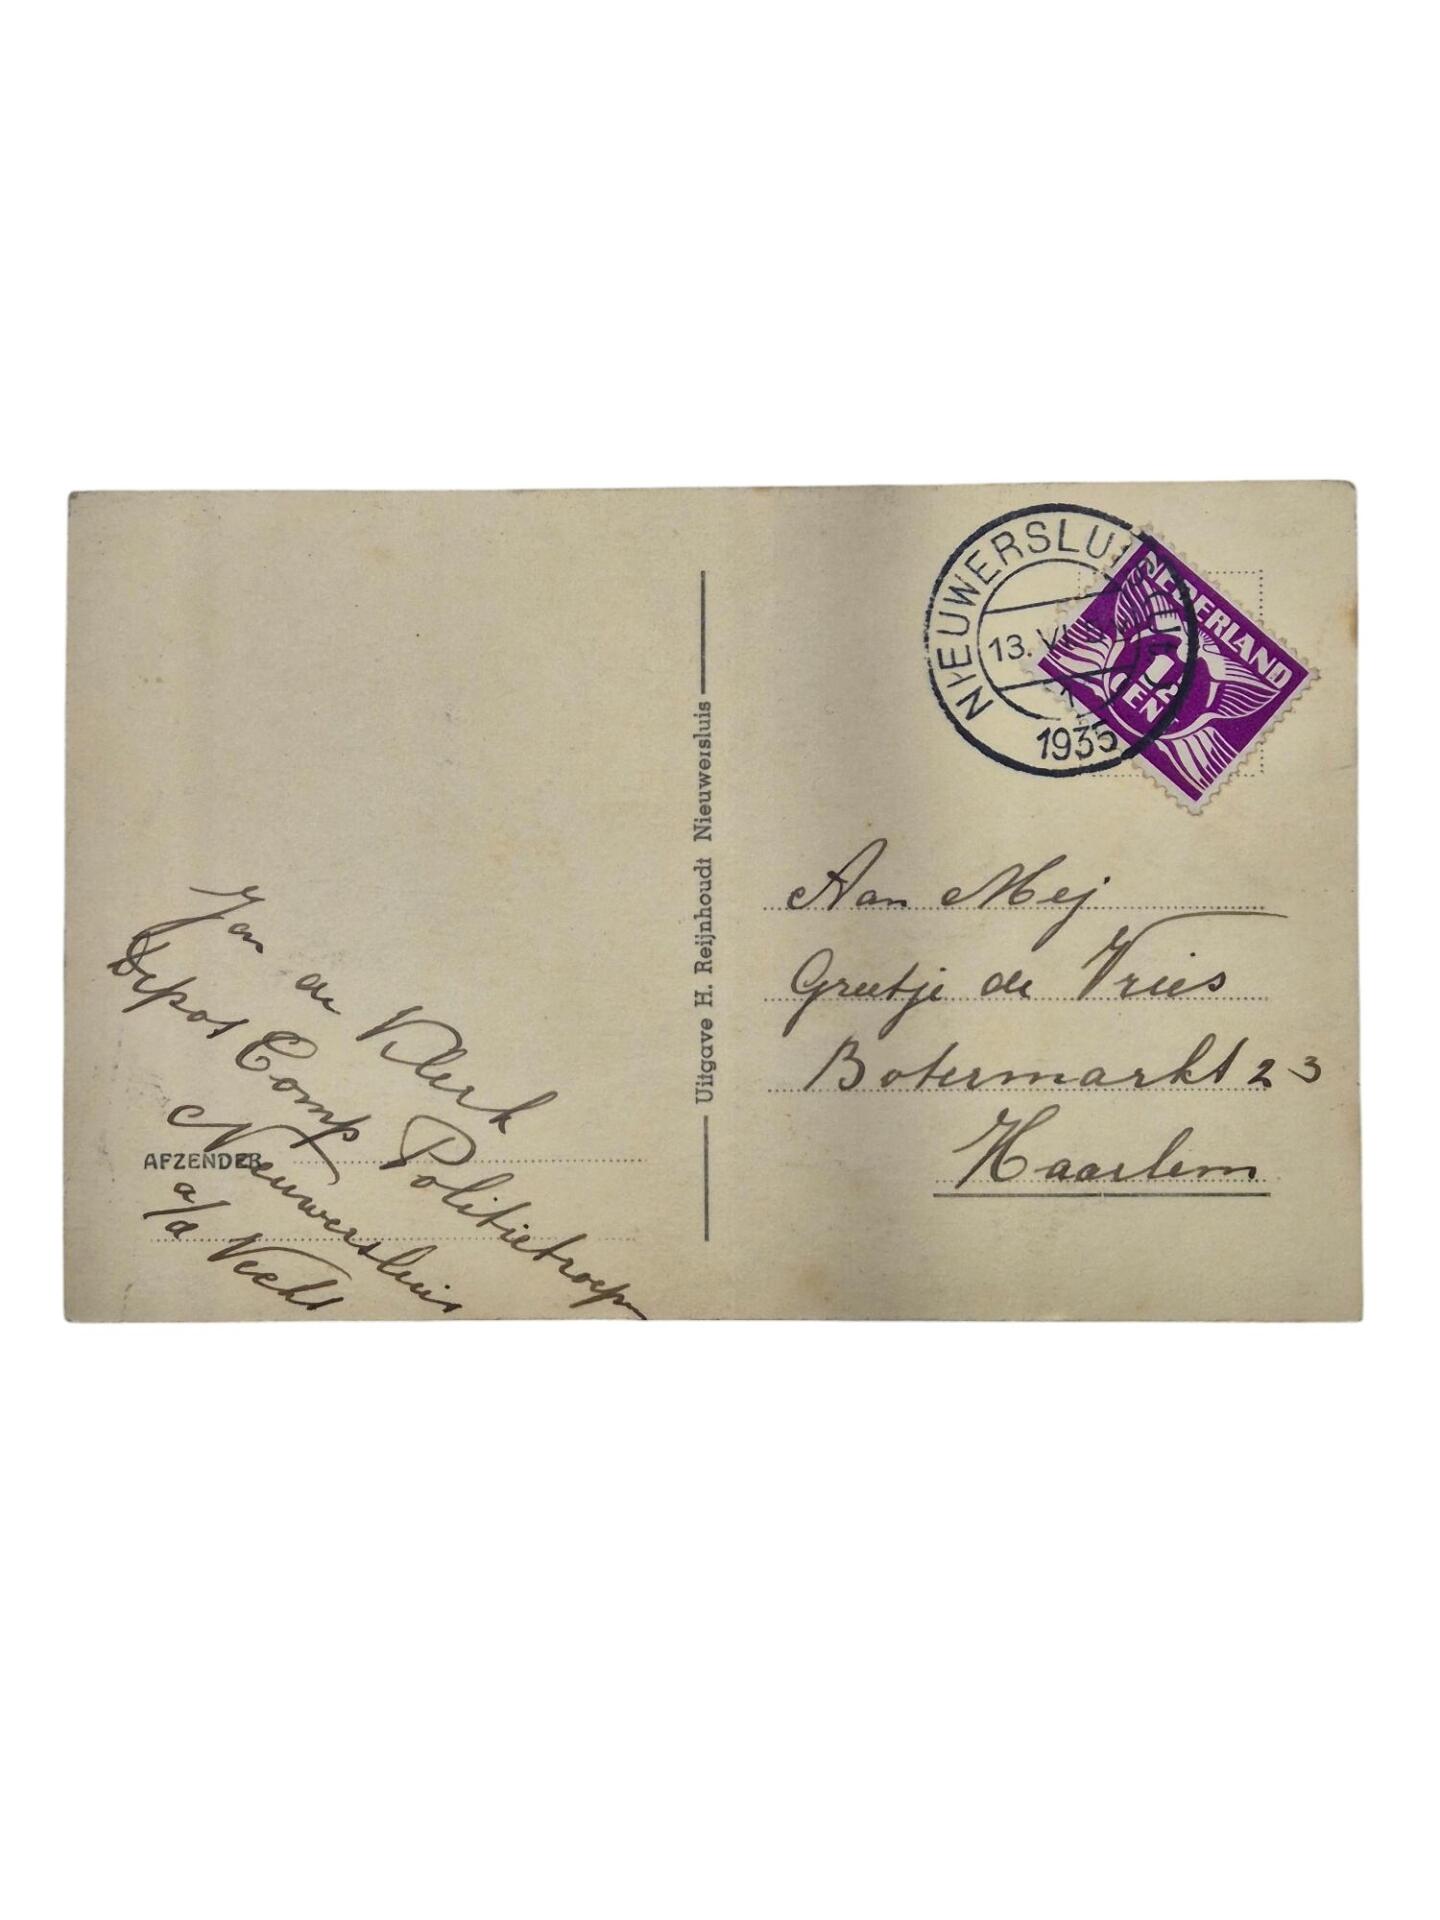 Jan de Klerk
Depot Comp Politietroep
AFZENDER
Nieuwersluis
a/d Vecht
Uitgave H. Reijnhoudt Nieuwersluis
NIEUWERSLUIS
13. VI
1935
NEDERLAND
1½
CENT
Aan Mej
Greetje de Vries
Botermarkt 23
Haarlem